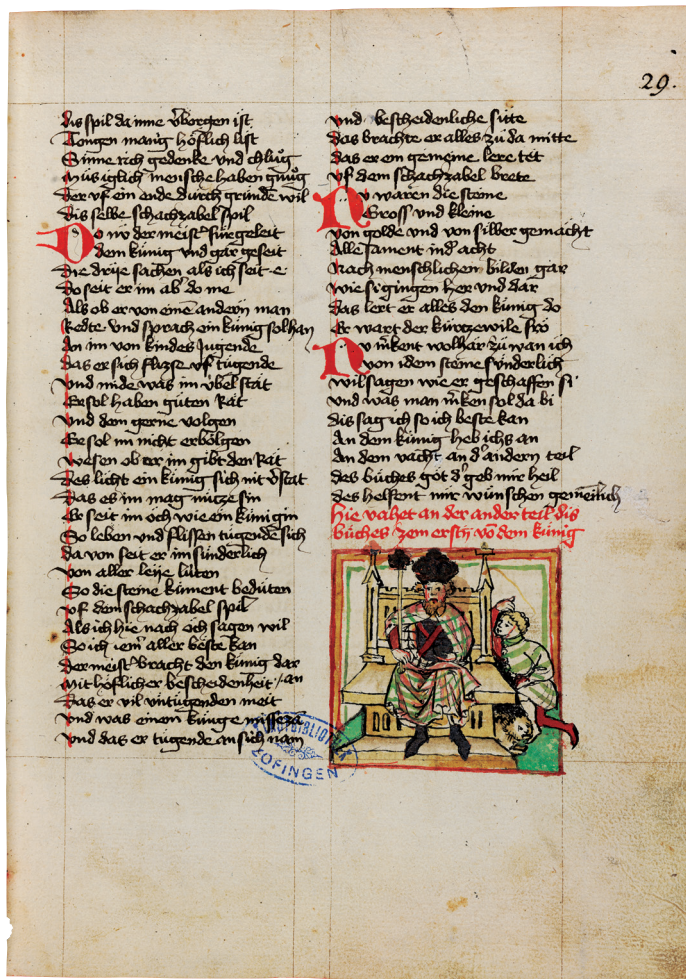 29.
dis spil da inne v̓borgen ist
Tǒgen manig höflich list
Sinne rich gedenke vnd chlůg
Műs iglich mensche haben gnůg
Der vf ein ende durch gründē wil
dis selbe schachzabel spil
Do nv der meist͛ fúrgeleit
dem kúnig vnd gar geseit
Die drije sachen als ich seit e
do seit er im ab͛ do me
Als ob er von einē andern man
Redte vnd sprach ein kúnig sol han
An im von kindes Jugende
das er sich flizse vf tugende
vnd mide was im v́bel stat
Er sol haben gůten Rat
vnd dem gerne volgen
Er sol im nicht erbolgen
wesen ob er im gibt den Rat
Des licht ein kúnig sich nit v̓stat
das es im mag nútze sin
Er seit im och wie ein kúnigin
So leben vnd flissen tugende sich
da von seit er im súnderlich
von aller leije lúten
So die steine kúnnent bedúten
vf dem schachzabel spil
Als ich hie nach och sagen wil
So ich iem͛ aller beste kan
Der meist͛ bracht den kúnig dar an
Mit höflicher bescheidenheit
das er vil vntugenden meit
vnd was einem kúnge misseza
vnd das er tugende an sich nam
vnd bescheidenliche sitte
das brachte er alles zů da mitte
das er ein gemeine lere tet
vf dem schachzabel brete
Nv waren die steine
Gross vnd kleine
von golde vnd von silber gemacht
Alle sament in d͛ acht
Nach menschlichen bilden gar
wie si giengen her vnd dar
das lert er alles den kúnig do
Er wart der kurtzewile fro
Nv m̓kent wol har zů wan ich
von idem steine súnderlich
wil sagen wie er geschaffen si
vnd was man m̓ken sol da bi
dis sag ich so ich beste kan
An dem kúnig heb ichs an
An dem vacht an d͛ andern teil
des bůches got d͛ geb mir heil
des helfent mir wúnschen gemeinlich
Hie vahet an der ander teil dis
bůches zem ersten vō dem kúnig
STADTBIBLIOTHEK
ZOFINGEN